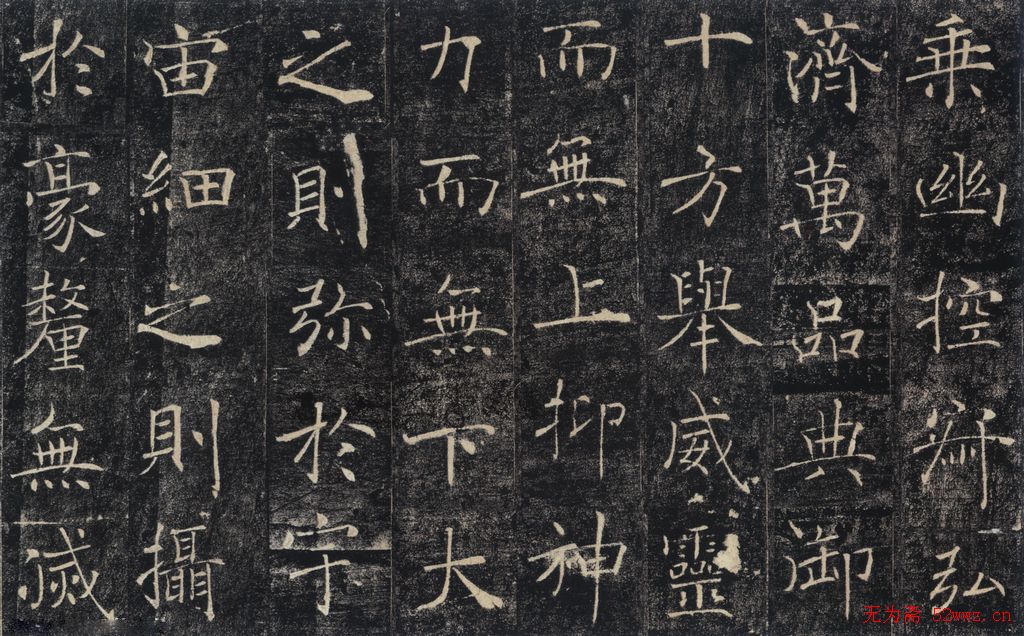 乗幽控寂弘
濟萬品典御
十方舉威靈
而無上抑神
力而無下大
之則弥於宇
宙細之則攝
於豪釐無滅
无为斋 52wwz.cn